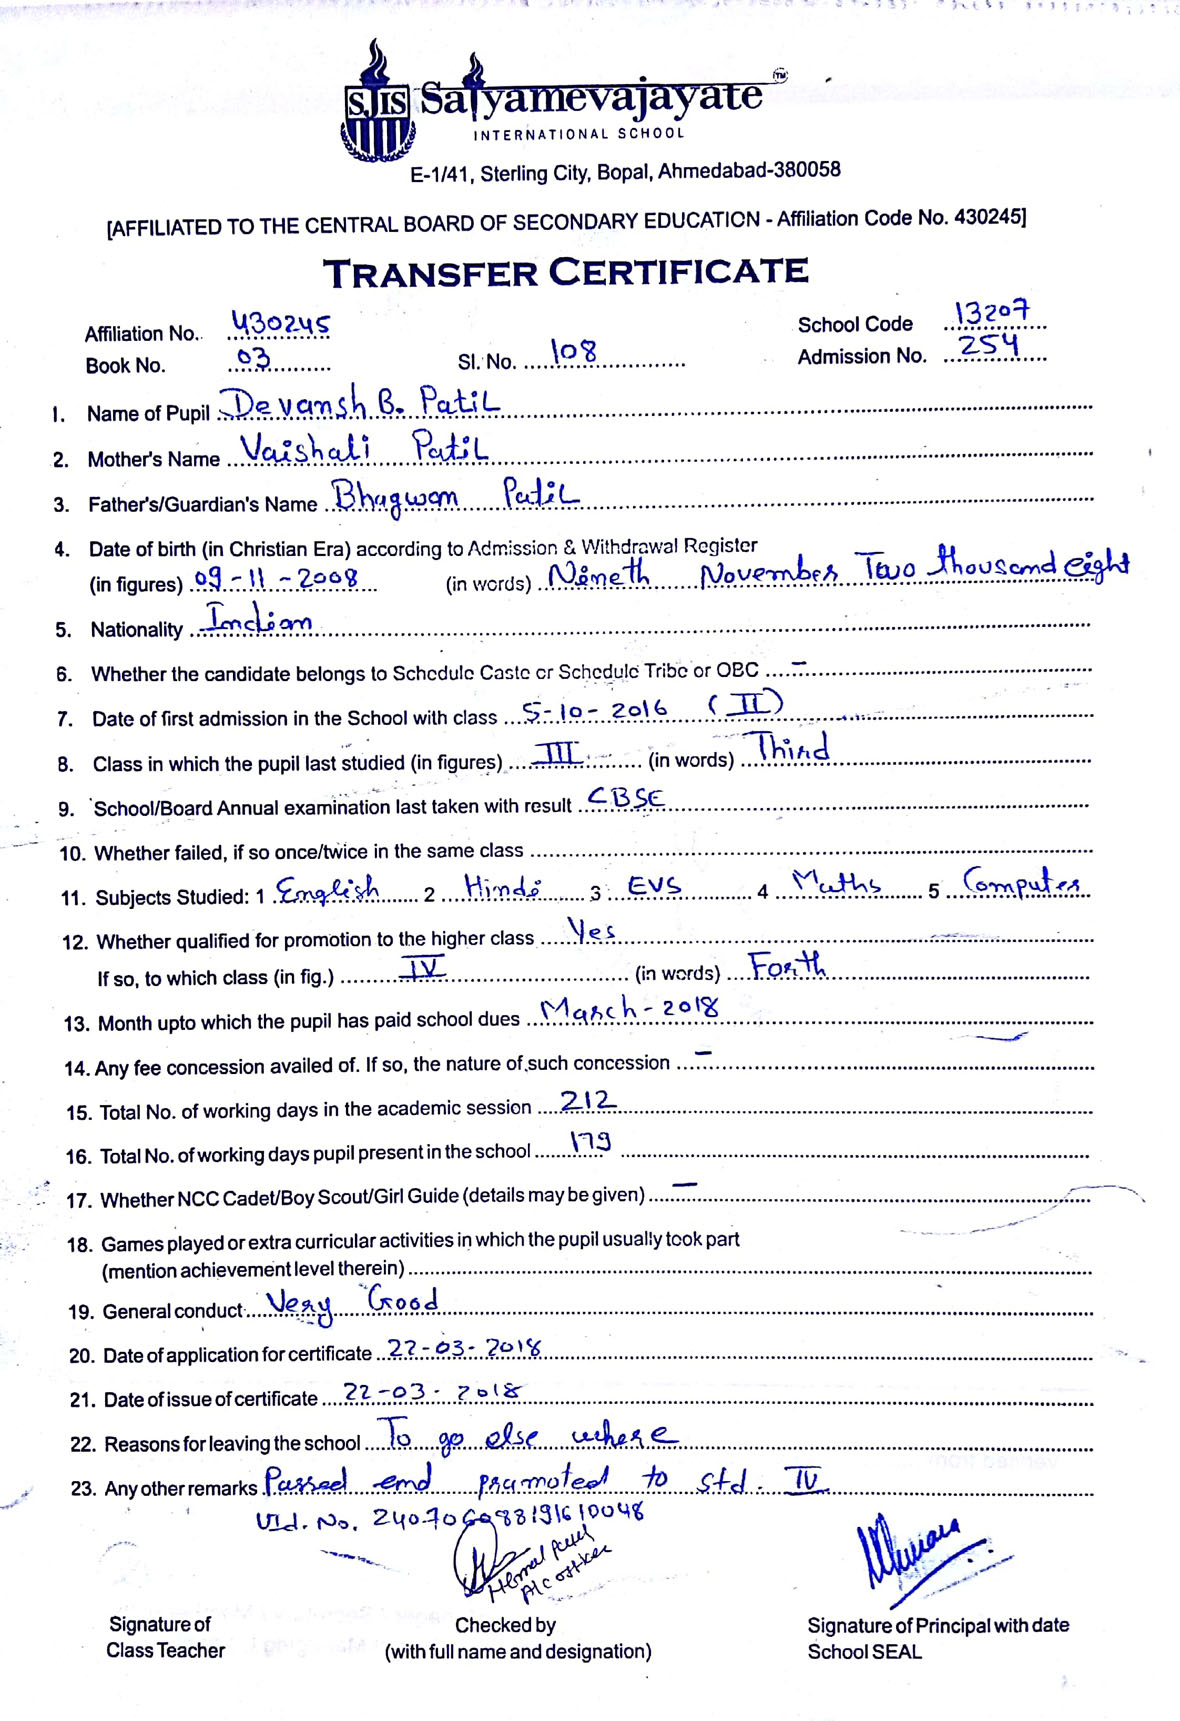 SJIS Satyamevajayate TM
INTERNATIONAL SCHOOL
E-1/41, Sterling City, Bopal, Ahmedabad-380058
[AFFILIATED TO THE CENTRAL BOARD OF SECONDARY EDUCATION - Affiliation Code No. 430245]
TRANSFER CERTIFICATE
Affiliation No. 430245 School Code 13207
Book No. 03 Sl. No. 108 Admission No. 254
1. Name of Pupil Devansh B. Patil
2. Mother's Name Vaishali Patil
3. Father's/Guardian's Name Bhagwan Patil
4. Date of birth (in Christian Era) according to Admission & Withdrawal Register
(in figures) 09-11-2008 (in words) Nineth November Two thousand eight
5. Nationality Indian
6. Whether the candidate belongs to Schedule Caste or Schedule Tribe or OBC -
7. Date of first admission in the School with class 5-10-2016 (II)
8. Class in which the pupil last studied (in figures) III (in words) Third
9. School/Board Annual examination last taken with result CBSE
10. Whether failed, if so once/twice in the same class
11. Subjects Studied: 1 English 2 Hindi 3 EVS 4 Maths 5 Computer
12. Whether qualified for promotion to the higher class Yes
If so, to which class (in fig.) IV (in words) Forth
13. Month upto which the pupil has paid school dues March-2018
14. Any fee concession availed of. If so, the nature of such concession -
15. Total No. of working days in the academic session 212
16. Total No. of working days pupil present in the school 179
17. Whether NCC Cadet/Boy Scout/Girl Guide (details may be given) -
18. Games played or extra curricular activities in which the pupil usually took part
(mention achievement level therein)
19. General conduct Very Good
20. Date of application for certificate 22-03-2018
21. Date of issue of certificate 22-03-2018
22. Reasons for leaving the school To go else where
23. Any other remarks Passed and promoted to std. IV
UId. No.
Signature of Checked by Signature of Principal with date
Class Teacher (with full name and designation) School SEAL